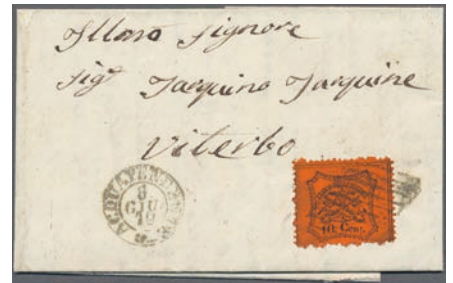 Illmo Signore
Sigr Tarquino Tarquine
Viterbo
ACQUAPENDENTE
6
GIU
10 Cent.